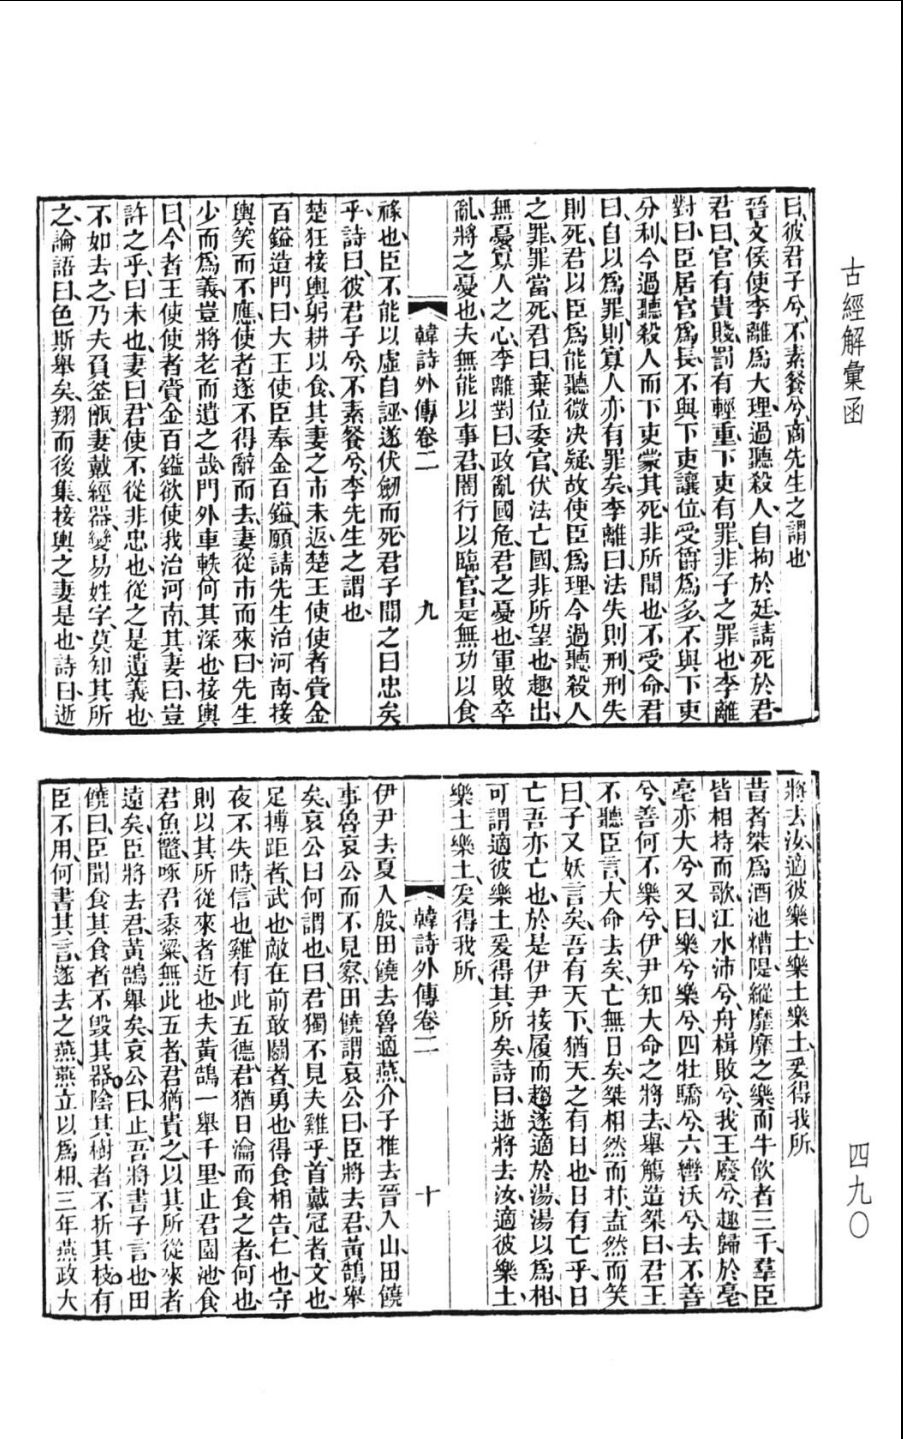 古經解彙函
四九〇
曰、彼君子兮、不素餐兮、商先生之謂也、
晉文侯使李離爲大理、過聽殺人、自拘於廷、請死於君、
君曰、官有貴賤、罰有輕重、下吏有罪、非子之罪也、李離
對曰、臣居官爲長、不與下吏讓位、受爵爲多、不與下吏
分利、今過聽殺人而下吏蒙其死、非所聞也、不受命、君
曰、自以爲罪、則寡人亦有罪矣、李離曰、法失則刑、刑失
則死、君以臣爲能聽微決疑、故使臣爲理、今過聽殺人
之罪、罪當死、君曰、棄位委官、伏法亡國、非所望也、趣出、
無憂寡人之心、李離對曰、政亂國危、君之憂也、軍敗卒
亂、將之憂也、夫無能以事君、闇行以臨官、是無功以食
韓詩外傳卷二
九
祿也、臣不能以虛自誣、遂伏劒而死、君子聞之曰、忠矣
乎、詩曰、彼君子兮、不素餐兮、李先生之謂也、
楚狂接輿躬耕以食、其妻之市未返、楚王使使者賫金
百鎰造門曰、大王使臣奉金百鎰、願請先生治河南、接
輿笑而不應、使者遂不得辭而去、妻從市而來曰、先生
少而爲義、豈將老而遺之哉、門外車軼何其深也、接輿
曰、今者王使使者賫金百鎰、欲使我治河南、其妻曰、豈
許之乎、曰未也、妻曰、君使不從、非忠也、從之是遺義也、
不如去之、乃夫負釜甑、妻戴經器、變易姓字、莫知其所
之、論語曰、色斯舉矣、翔而後集、接輿之妻是也、詩曰、逝
將去汝、適彼樂土、樂土樂土、爰得我所、
昔者桀爲酒池糟隄、縱靡靡之樂而牛飲者三千、羣臣
皆相持而歌、江水沛兮、舟楫敗兮、我王廢兮、趣歸於亳、
亳亦大兮、又曰、樂兮樂兮、四牡驕兮、六轡沃兮、去不善
兮、善何不樂兮、伊尹知大命之將去、舉觴造桀曰、君王
不聽臣言、大命去矣、亡無日矣、桀相然而抃、盍然而笑
曰、子又妖言矣、吾有天下、猶天之有日也、日有亡乎、日
亡吾亦亡也、於是伊尹接履而趨、遂適於湯、湯以爲相、
可謂適彼樂土、爰得其所矣、詩曰、逝將去汝、適彼樂土、
樂土樂土、爰得我所、
韓詩外傳卷二
十
伊尹去夏入殷、田饒去魯適燕、介子推去晉入山、田饒
事魯哀公而不見察、田饒謂哀公曰、臣將去君、黃鵠舉
矣、哀公曰、何謂也、曰、君獨不見夫雞乎、首戴冠者、文也、
足搏距者、武也、敵在前敢鬭者、勇也、得食相告、仁也、守
夜不失時、信也、雞有此五德、君猶日瀹而食之者、何也、
則以其所從來者近也、夫黃鵠一舉千里、止君園池、食
君魚鼈、啄君黍粱、無此五者、君猶貴之、以其所從來者
遠矣、臣將去君、黃鵠舉矣、哀公曰、止、吾將書子言也、田
饒曰、臣聞食其食者、不毀其器、陰其樹者、不折其枝、有
臣不用、何書其言、遂去之燕、燕立以爲相、三年燕政大